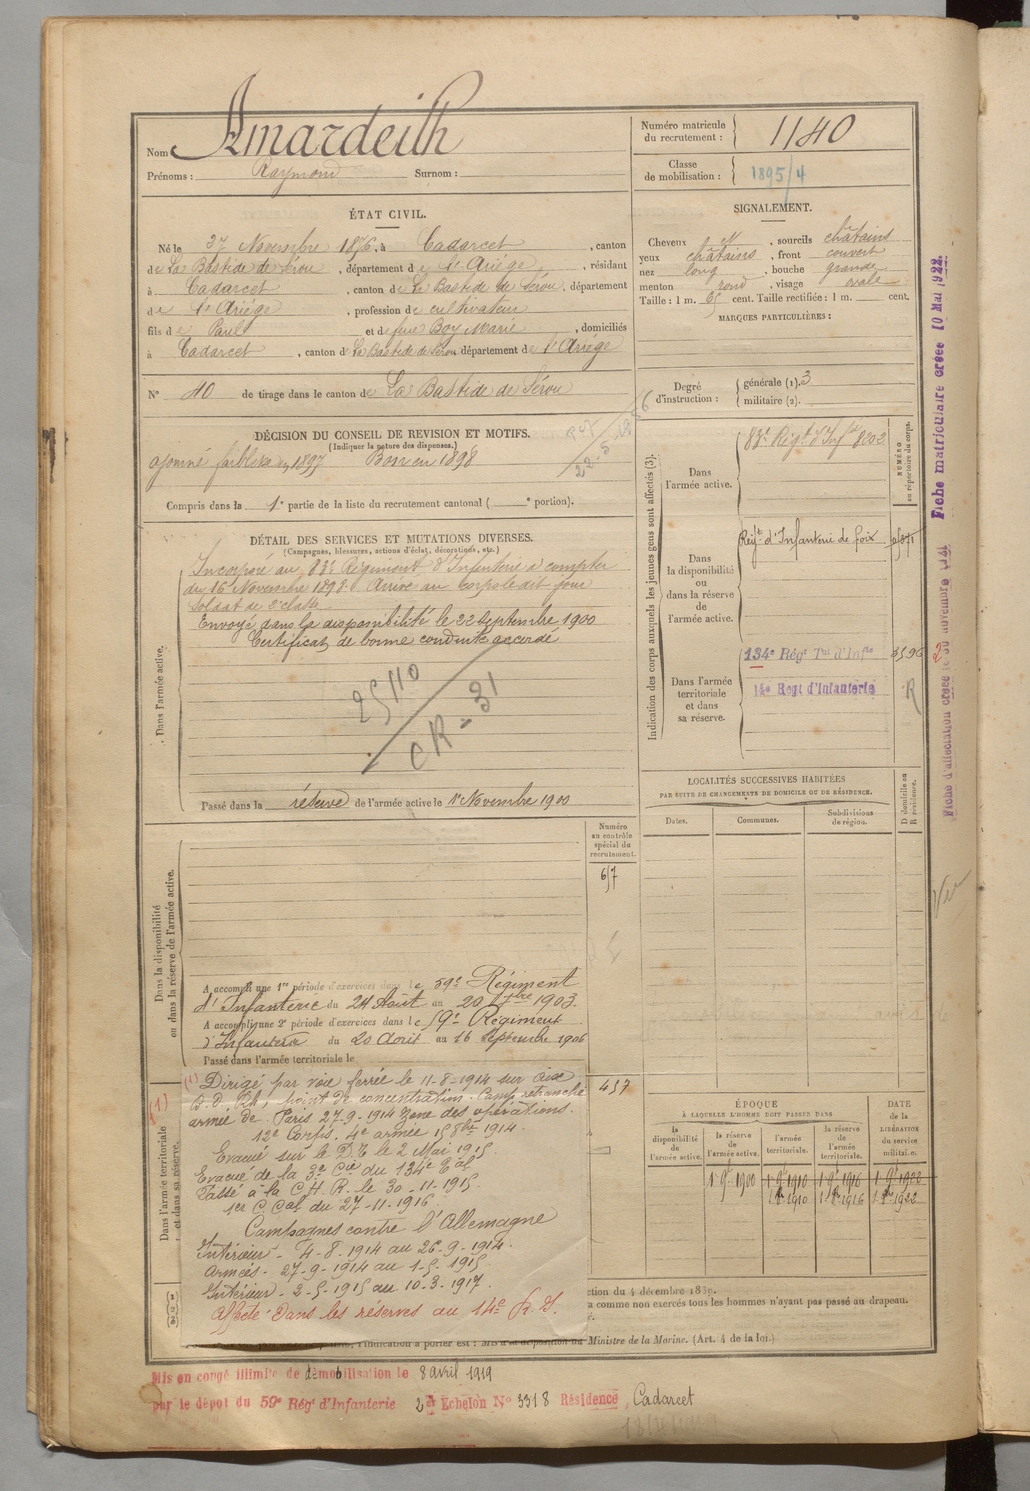 Nom Amardeilh
Prénoms : Raymond Surnom :
Numéro matricule du recrutement : 1140
Classe de mobilisation : 1895/4
ÉTAT CIVIL.
Né le 27 Novembre 1876, à Cadarcet, canton
de La Bastide de Sérou, département de l'Ariège, résidant
à Cadarcet, canton de La Bastide de Sérou, département
de l'Ariège, profession de cultivateur
fils de Paul et de feue Boy Marie, domiciliés
à Cadarcet, canton de La Bastide de Sérou département de l'Ariège
N° 40 de tirage dans le canton de La Bastide de Sérou
SIGNALEMENT.
Cheveux et, sourcils châtains
yeux châtains, front couvert
nez long, bouche grande
menton rond, visage ovale
Taille : 1 m. 65 cent. Taille rectifiée : 1 m. cent.
MARQUES PARTICULIÈRES :
Degré d'instruction : générale (1). 3
militaire (2).
DÉCISION DU CONSEIL DE REVISION ET MOTIFS.
(Indiquer la nature des dispenses.)
ajourné faiblesse en 1897 Bon en 1898
22.5
Compris dans la 1e partie de la liste du recrutement cantonal ( e portion).
DÉTAIL DES SERVICES ET MUTATIONS DIVERSES.
(Campagnes, blessures, actions d'éclat, décorations, etc.)
Dans l'armée active.
Incorporé au 83e Régiment d'Infanterie à compter
du 16 Novembre 1898. Arrivé au corps le dit jour
soldat de 2e classe
Envoyé dans la disponibilité le 22 Septembre 1900
Certificat de bonne conduite accordé
25110
CR - 31
Passé dans la réserve de l'armée active le 1er Novembre 1900
Indication des corps auxquels les jeunes gens sont affectés (3).
NUMÉRO au répertoire du corps.
Dans l'armée active.
83e Régt d'Infie 8202
Dans la disponibilité ou dans la réserve de l'armée active.
Régt d'Infanterie de foix
Dans l'armée territoriale et dans sa réserve.
134e Régt Tal d'Infie 3596
14e Regt d'Infanterie R
Fiche matriculaire créée 10 Mai 1922.
Fiche d'affectation créée le 30 novembre 1921
2
LOCALITÉS SUCCESSIVES HABITÉES
PAR SUITE DE CHANGEMENTS DE DOMICILE OU DE RÉSIDENCE.
Dates. Communes. Subdivisions de région. D domicile ou R résidence.
Numéro au contrôle spécial du recrutement.
657
Dans la disponibilité
ou dans la réserve de l'armée active.
A accompli une 1re période d'exercices dans le 59e Régiment
d'Infanterie du 24 Août au 20 7bre 1903.
A accompli une 2e période d'exercices dans le 59e Régiment
d'Infanterie du 20 Août au 16 Septembre 1906
Passé dans l'armée territoriale le
Dans l'armée territoriale et dans sa réserve.
(1)
457
(1) Dirigé par voie ferrée le 11-8-1914 sur Aix
B.D.Rh, point de concentration. Camp retranché
armée de Paris 27-9-1914 Zone des opérations.
12e Corps, 4e armée 15 8bre 1914.
Evacué sur le D.T. le 2 Mai 1915
Evacué de la 3e Cie du 134e Tal
Passé à la C.H.R. le 30-11-1915.
1er C Cal du 27-11-1916
Campagnes contre l'Allemagne
Intérieur - 4-8-1914 au 26-9-1914.
Armées - 27-9-1914 au 1-5-1915
Intérieur - 2-5-1915 au 10-3-1917.
Affecté dans les réserves au 14e R.I.
ÉPOQUE
À LAQUELLE L'HOMME DOIT PASSER DANS
DATE de la LIBÉRATION du service militaire.
la disponibilité de l'armée active. la réserve de l'armée active. l'armée territoriale. la réserve de l'armée territoriale.
1 9bre 1900 1 9bre 1910 1 9bre 1916 1 9bre 1922
1910 1916 1922
ction du 4 décembre 1889.
a comme non exercés tous les hommes n'ayant pas passé au drapeau.
l'indication à porter est : Mis à la disposition du Ministre de la Marine. (Art. 4 de la loi.)
Mis en congé illimité de démobilisation le 8 avril 1919
par le dépôt du 59e Régt d'Infanterie 2e Echelon N° 3318 Résidence, Cadarcet